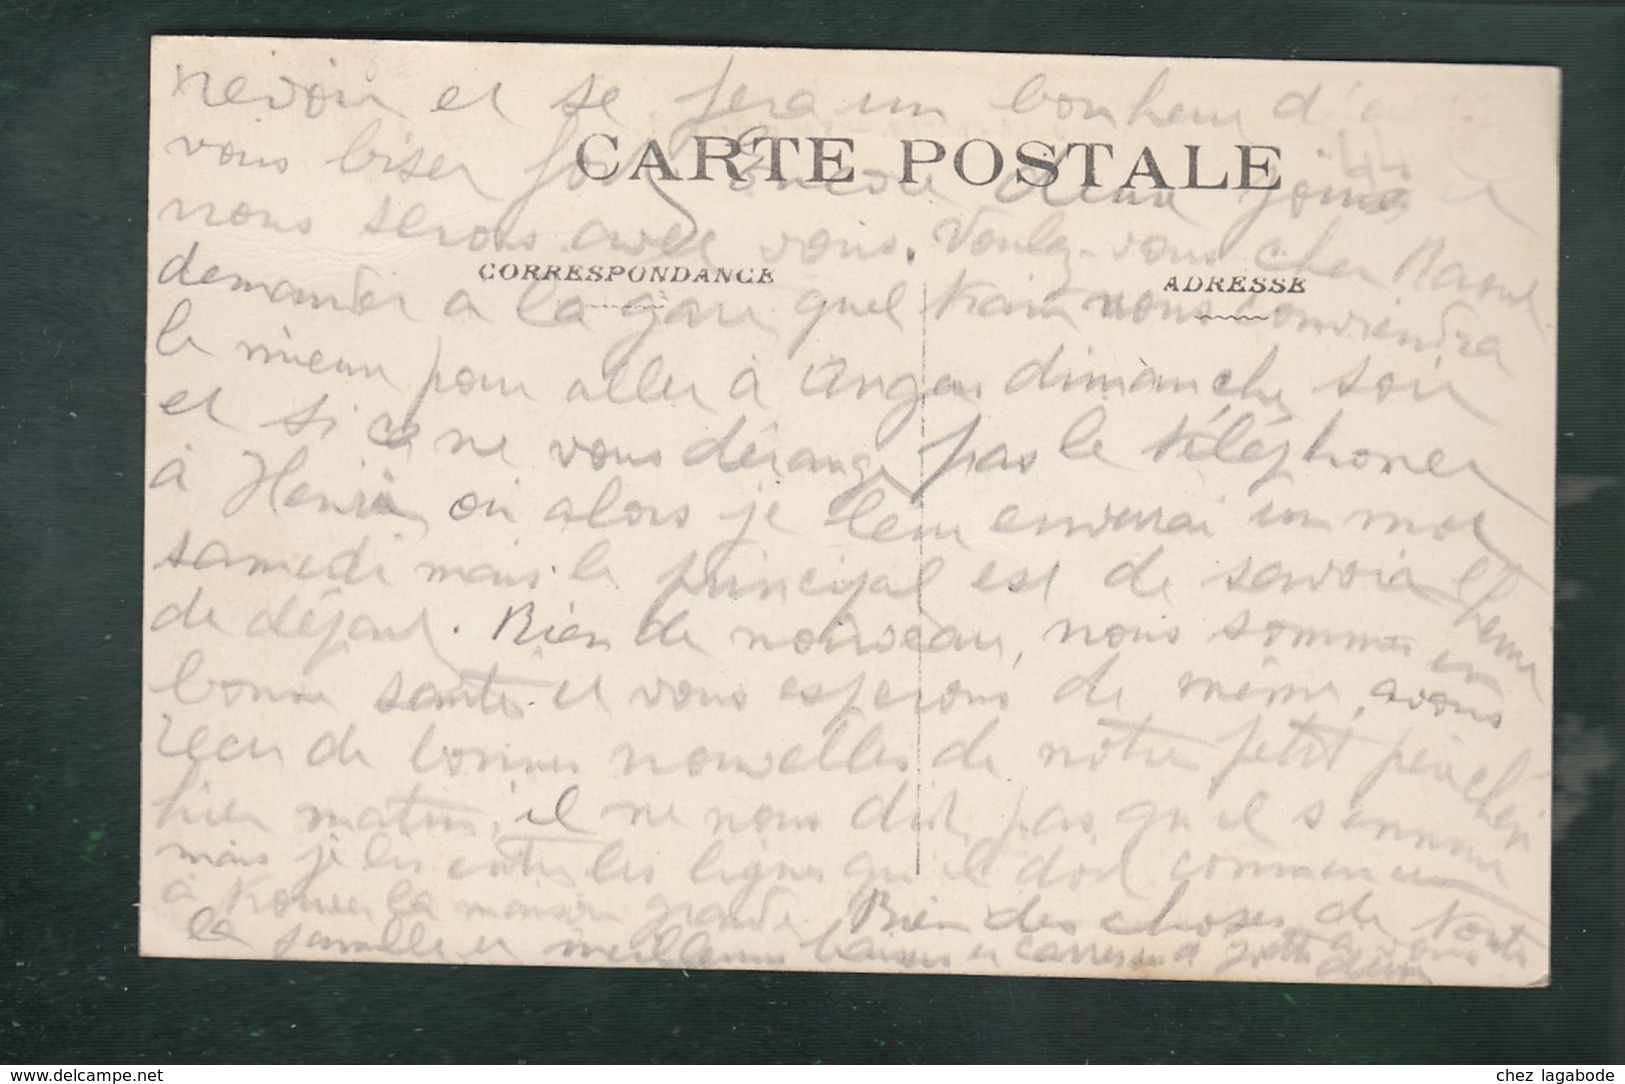 revoir et se sera un bonheur d'
vous biser fois encore deux jours et
CARTE POSTALE
44
nous serons avec vous. Voulez-vous cher Raoul
CORRESPONDANCE
ADRESSE
demander a la gare quel train nous conviendra
le mieux pour aller à Angers dimanche soir
et si ça ne vous dérange pas le téléphoner
à Henri où alors je leur enverrai un mot
samedi mais le principal est de savoir l'heure
de départ. Rien de nouveau, nous sommes en
bonne santé et vous esperons de même, avons
recu de bonnes nouvelles de notre petit
hier matin, il ne nous dit pas qu'il s'ennuie
mais je lis entre les lignes qu'il doit commencer
à trouver la maison grande. Bien des choses de toute
la famille et meilleurs baisers et caresses a vous
deux
delcampe.net
chez lagabode